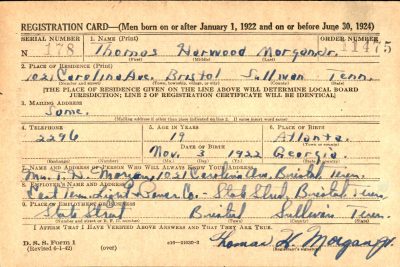 REGISTRATION CARD—(Men born on or after January 1, 1922 and on or before June 30, 1924)
SERIAL NUMBER 1. NAME (Print) ORDER NUMBER
N 178 Thomas Norwood Morgan Jr. 11475
(First) (Middle) (Last)
2. PLACE OF RESIDENCE (Print)
1021 Carolina Ave. Bristol Sullivan Tenn.
(Number and street) (Town, township, village, or city) (County) (State)
[THE PLACE OF RESIDENCE GIVEN ON THE LINE ABOVE WILL DETERMINE LOCAL BOARD
JURISDICTION; LINE 2 OF REGISTRATION CERTIFICATE WILL BE IDENTICAL]
3. MAILING ADDRESS
Same.
[Mailing address if other than place indicated on line 2. If same insert word same]
4. TELEPHONE 5. AGE IN YEARS 6. PLACE OF BIRTH
2296 19 Atlanta
DATE OF BIRTH (Town or county)
Nov. 3 1922 Georgia
(Exchange) (Number) (Mo.) (Day) (Yr.) (State or country)
7. NAME AND ADDRESS OF PERSON WHO WILL ALWAYS KNOW YOUR ADDRESS
Mrs. T. N. Morgan, 1021 Carolina Ave Bristol, Tenn.
8. EMPLOYER'S NAME AND ADDRESS
East Tenn. Light Power Co - State Street, Bristol, Tenn
9. PLACE OF EMPLOYMENT OR BUSINESS
State Street Bristol Sullivan Tenn.
(Number and street or R. F. D. number) (Town) (County) (State)
I AFFIRM THAT I HAVE VERIFIED ABOVE ANSWERS AND THAT THEY ARE TRUE.
D. S. S. Form 1 Thomas N. Morgan Jr.
(Revised 6-1-42) (over) (Registrant's signature)